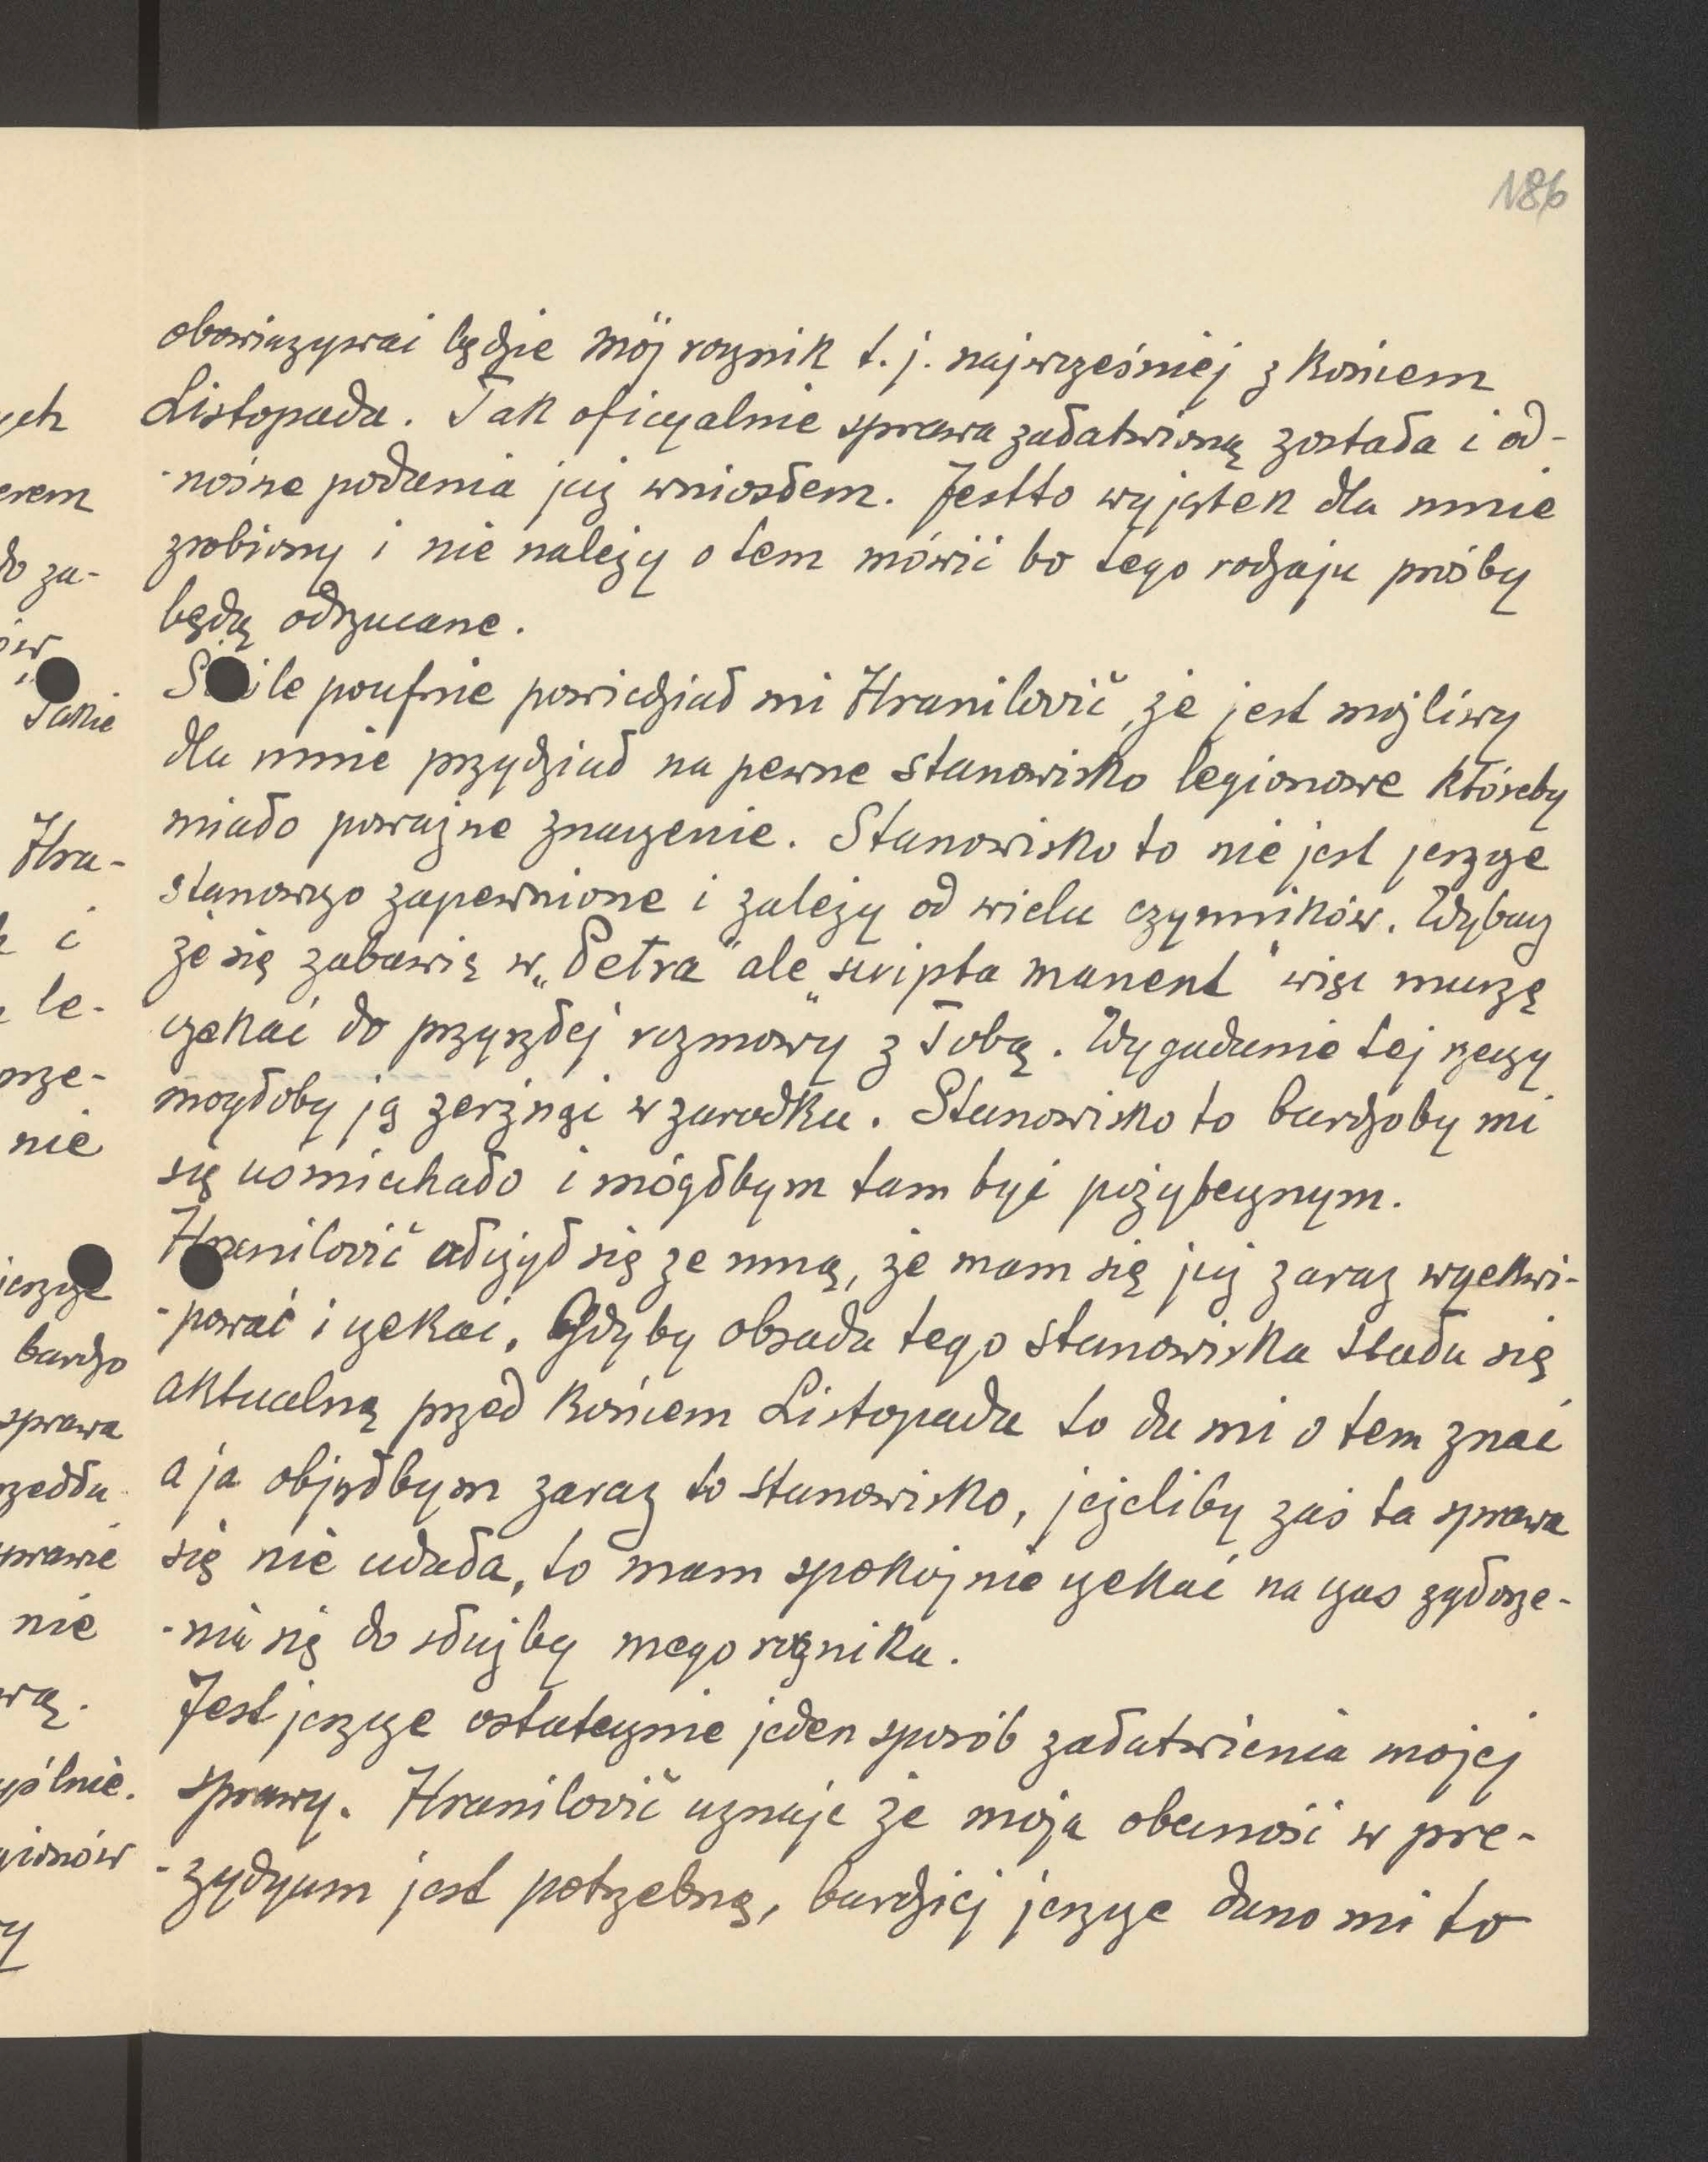 186
obowiązywać będzie mój rocznik t.j. najwcześniej z końcem
Listopada. Tak oficyalnie sprawa załatwioną została i od-
-nośne podania już wniosłem. Jestto wyjątek dla mnie
zrobiony i nie należy o tem mówić bo tego rodzaju prośby
będą odrzucane.
Ściśle poufnie powiedział mi Hranilović, że jest możliwy
dla mnie przydział na pewne stanowisko legionowe któreby
miało poważne znaczenie. Stanowisko to nie jest jeszcze
stanowczo zapewnione i zależy od wielu czynników. Wybacz
że się zabawię w „Petra" ale „scripta manent" więc muszę
czekać do przyszłej rozmowy z Tobą. Wygadanie tej rzeczy
mogłoby ją zerżnąć w zarodku. Stanowisko to bardzoby mi
się uśmiechało i mógłbym tam być pożytecznym.
Hranilović ułożył się ze mną, że mam się już zaraz wyekwi-
-pować i czekać. Gdyby obsada tego stanowiska stała się
aktualną przed końcem Listopada to da mi o tem znać
a ja objąłbym zaraz to stanowisko, jeżeliby zaś ta sprawa
się nie udała, to mam spokojnie czekać na czas zgłosze-
-nia się do służby mego rocznika.
Jest jeszcze ostatecznie jeden sposób załatwienia mojej
sprawy. Hranilović uznaje że moja obecność w pre-
-zydyum jest potrzebną, bardziej jeszcze dano mi to
ych
erem
do za-
ów
"
Takie
Hra-
k i
le-
prze-
nie
jeszcze
bardzo
sprawa
szedła
prawie
nie
wą.
gólnie.
gionów
y